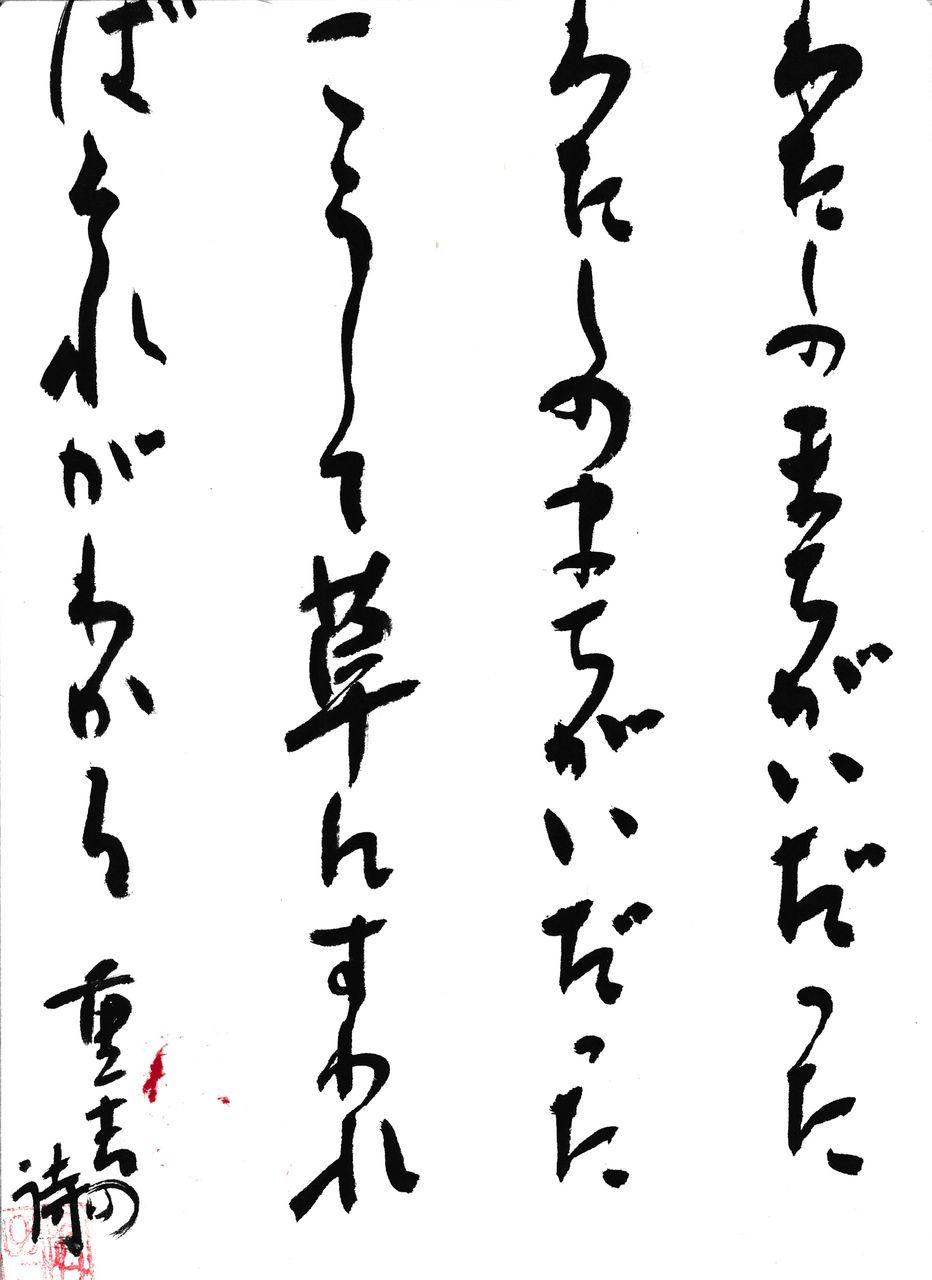 わたしのまちがいだった
わたしのまちがいだった
こうして草にすわれ
ばそれがわかる
重吉の
詩